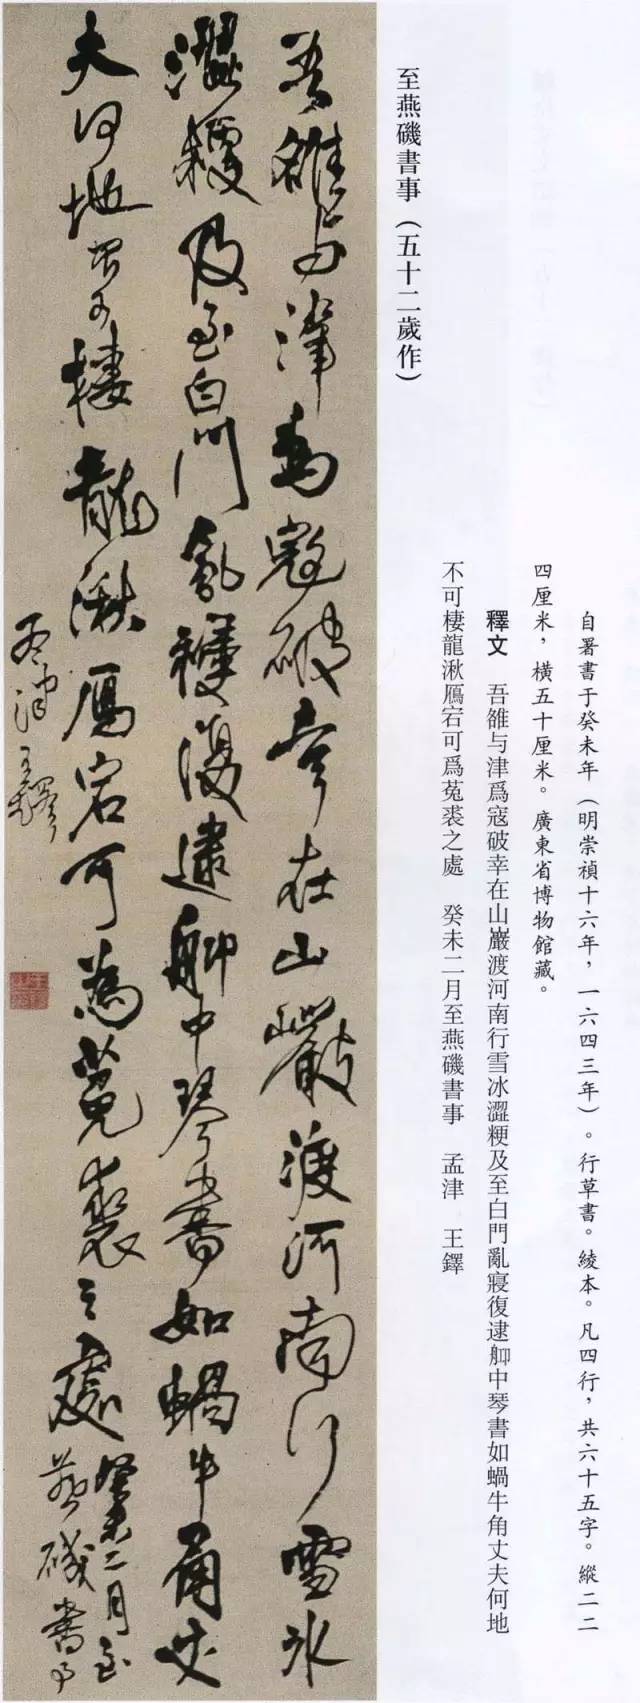 自署書于癸未年（明崇禎十六年，一六四三年）。行草書。綾本。凡四行，共六十五字。縱二二
四厘米，橫五十厘米。廣東省博物館藏。
釋文 吾雒与津爲寇破幸在山巖渡河南行雪冰澀粳及至白門亂寢復逮中琴書如蝸牛角丈夫何地
不可棲龍湫鴈宕可爲菟裘之處 癸未二月至燕磯書事 孟津 王鐸
至燕磯書事（五十二歲作）
吾雒与津為寇破幸在山巖渡河南行雪氷
澀粳及至白門亂寢復逮中琴書如蝸牛角丈
夫何地不可棲龍湫鴈宕可為菟裘之處 癸未二月至
燕磯書事
孟津王鐸